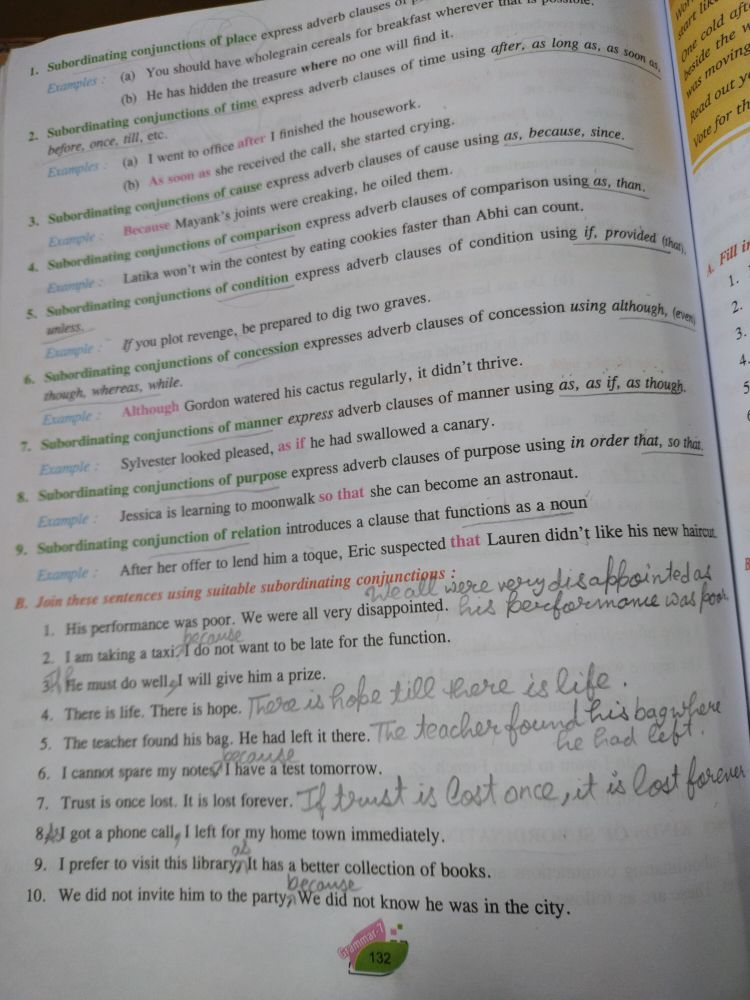 1. Subordinating conjunctions of place express adverb clauses of
Examples : (a) You should have wholegrain cereals for breakfast wherever that is possible.
(b) He has hidden the treasure where no one will find it.
2. Subordinating conjunctions of time express adverb clauses of time using after, as long as, as soon as,
before, once, till, etc.
Examples : (a) I went to office after I finished the housework.
(b) As soon as she received the call, she started crying.
3. Subordinating conjunctions of cause express adverb clauses of cause using as, because, since.
Example : Because Mayank's joints were creaking, he oiled them.
4. Subordinating conjunctions of comparison express adverb clauses of comparison using as, than.
Example : Latika won't win the contest by eating cookies faster than Abhi can count.
5. Subordinating conjunctions of condition express adverb clauses of condition using if, provided (that),
unless.
Example : If you plot revenge, be prepared to dig two graves.
6. Subordinating conjunctions of concession expresses adverb clauses of concession using although, (even)
though, whereas, while.
Example : Although Gordon watered his cactus regularly, it didn't thrive.
7. Subordinating conjunctions of manner express adverb clauses of manner using as, as if, as though.
Example : Sylvester looked pleased, as if he had swallowed a canary.
8. Subordinating conjunctions of purpose express adverb clauses of purpose using in order that, so that.
Example : Jessica is learning to moonwalk so that she can become an astronaut.
9. Subordinating conjunction of relation introduces a clause that functions as a noun
Example : After her offer to lend him a toque, Eric suspected that Lauren didn't like his new haircut.
B. Join these sentences using suitable subordinating conjunctions :
We all were very disappointed as
1. His performance was poor. We were all very disappointed. his performance was poor.
because
2. I am taking a taxi. I do not want to be late for the function.
3. If He must do well, I will give him a prize.
4. There is life. There is hope. There is hope till there is life.
5. The teacher found his bag. He had left it there. The teacher found his bag where
he had left.
because
6. I cannot spare my notes. I have a test tomorrow.
7. Trust is once lost. It is lost forever. If trust is lost once, it is lost forever
8. As I got a phone call, I left for my home town immediately.
as
9. I prefer to visit this library. It has a better collection of books.
because
10. We did not invite him to the party. We did not know he was in the city.
Grammar-7
132
start like
One cold aft
beside the
was moving
Read out y
Vote for th
A. Fill in
1.
2.
3.
4.
5
B